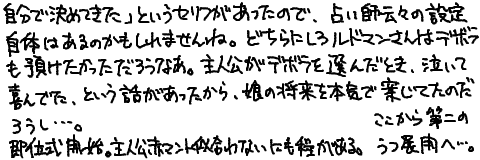 自分で決めてきた」というセリフがあったので、占い師云々の設定
自体はあるのかもしれませんね。どちらにしろルドマンさんはデボラ
も預けたかっただろうなあ。主人公がデボラを選んだとき、泣いて
喜んでた、という話があったから、娘の将来を本気で案じてたのだ
ろうし…。
ここから第二の
即位式開始。主人公赤マント似合わないにも程がある。うつ展開へ…。